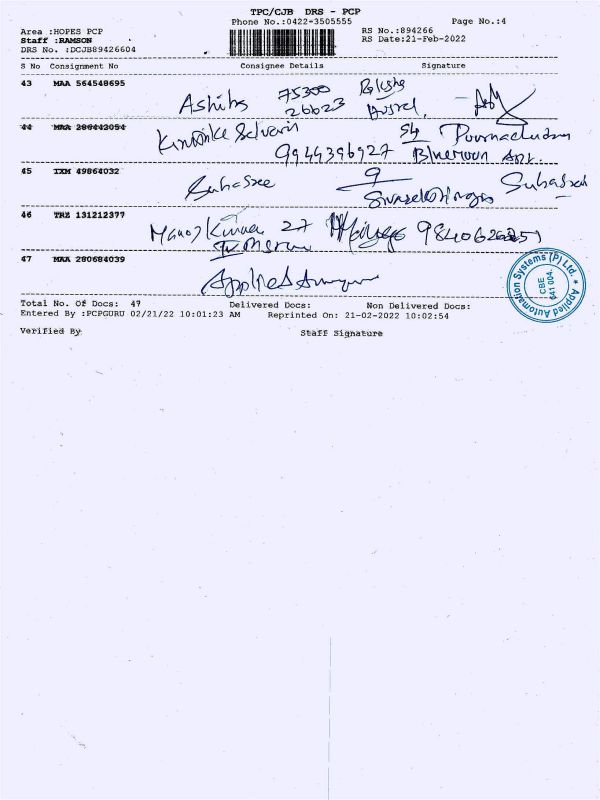 TPC/CJB DRS - PCP
Phone No.:0422-3505555 Page No.:4
Area :HOPES PCP RS No.:894266
Staff :RAMSON RS Date:21-Feb-2022
DRS No. :DCJB89426604
S No Consignment No Consignee Details Signature
43 MAA 564548695
75300
26623
44 MAA 286442054
54
9944396927
45 TXM 49864032
Subasree 9
46 TRZ 131212377
Manoj Kumar 27
47 MAA 280684039
Applied
Applied Automation Systems (P) Ltd.
CBE
641 004.
Total No. Of Docs: 47 Delivered Docs: Non Delivered Docs:
Entered By :PCPGURU 02/21/22 10:01:23 AM Reprinted On: 21-02-2022 10:02:54
Verified By Staff Signature